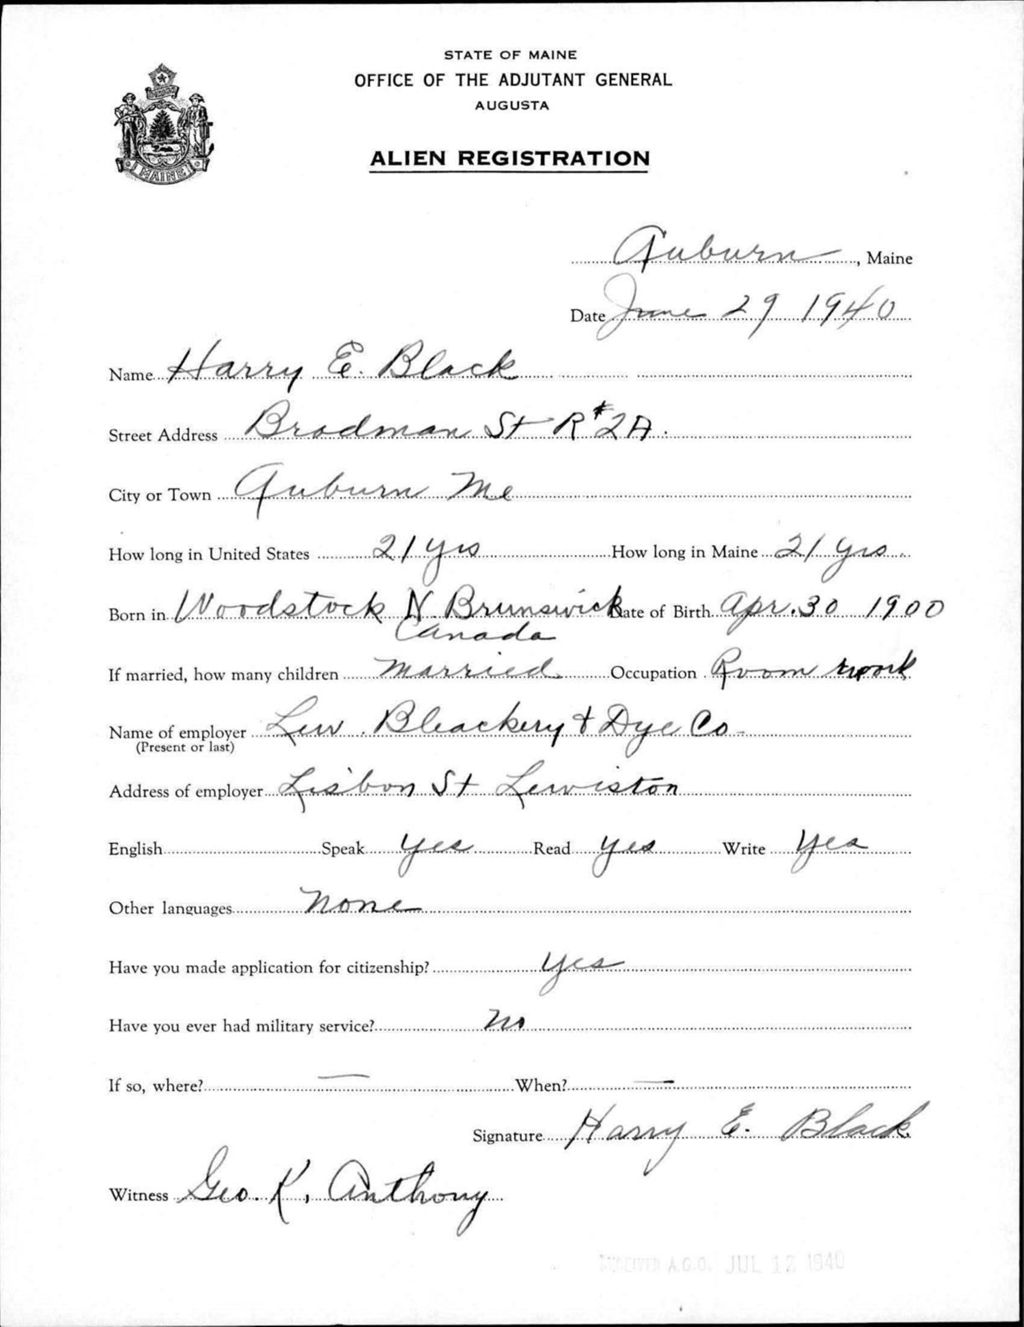 STATE OF MAINE
OFFICE OF THE ADJUTANT GENERAL
AUGUSTA
ALIEN REGISTRATION
MAINE
Auburn, Maine
Date June 29 1940
Name Harry E. Black
Street Address Brodman St R#2A.
City or Town Auburn Me
How long in United States 21 yrs How long in Maine 21 yrs.
Born in Woodstock N Brunswick Date of Birth Apr. 30 1900
Canada
If married, how many children married Occupation Room work
Name of employer Lew. Bleackery & Dye Co.
(Present or last)
Address of employer Lisbon St Lewiston
English Speak yes Read yes Write yes
Other languages none
Have you made application for citizenship? yes
Have you ever had military service? no
If so, where? — When? —
Signature Harry E. Black
Witness Geo. K. Anthony
RECEIVED A.G.O. JUL 12 1940